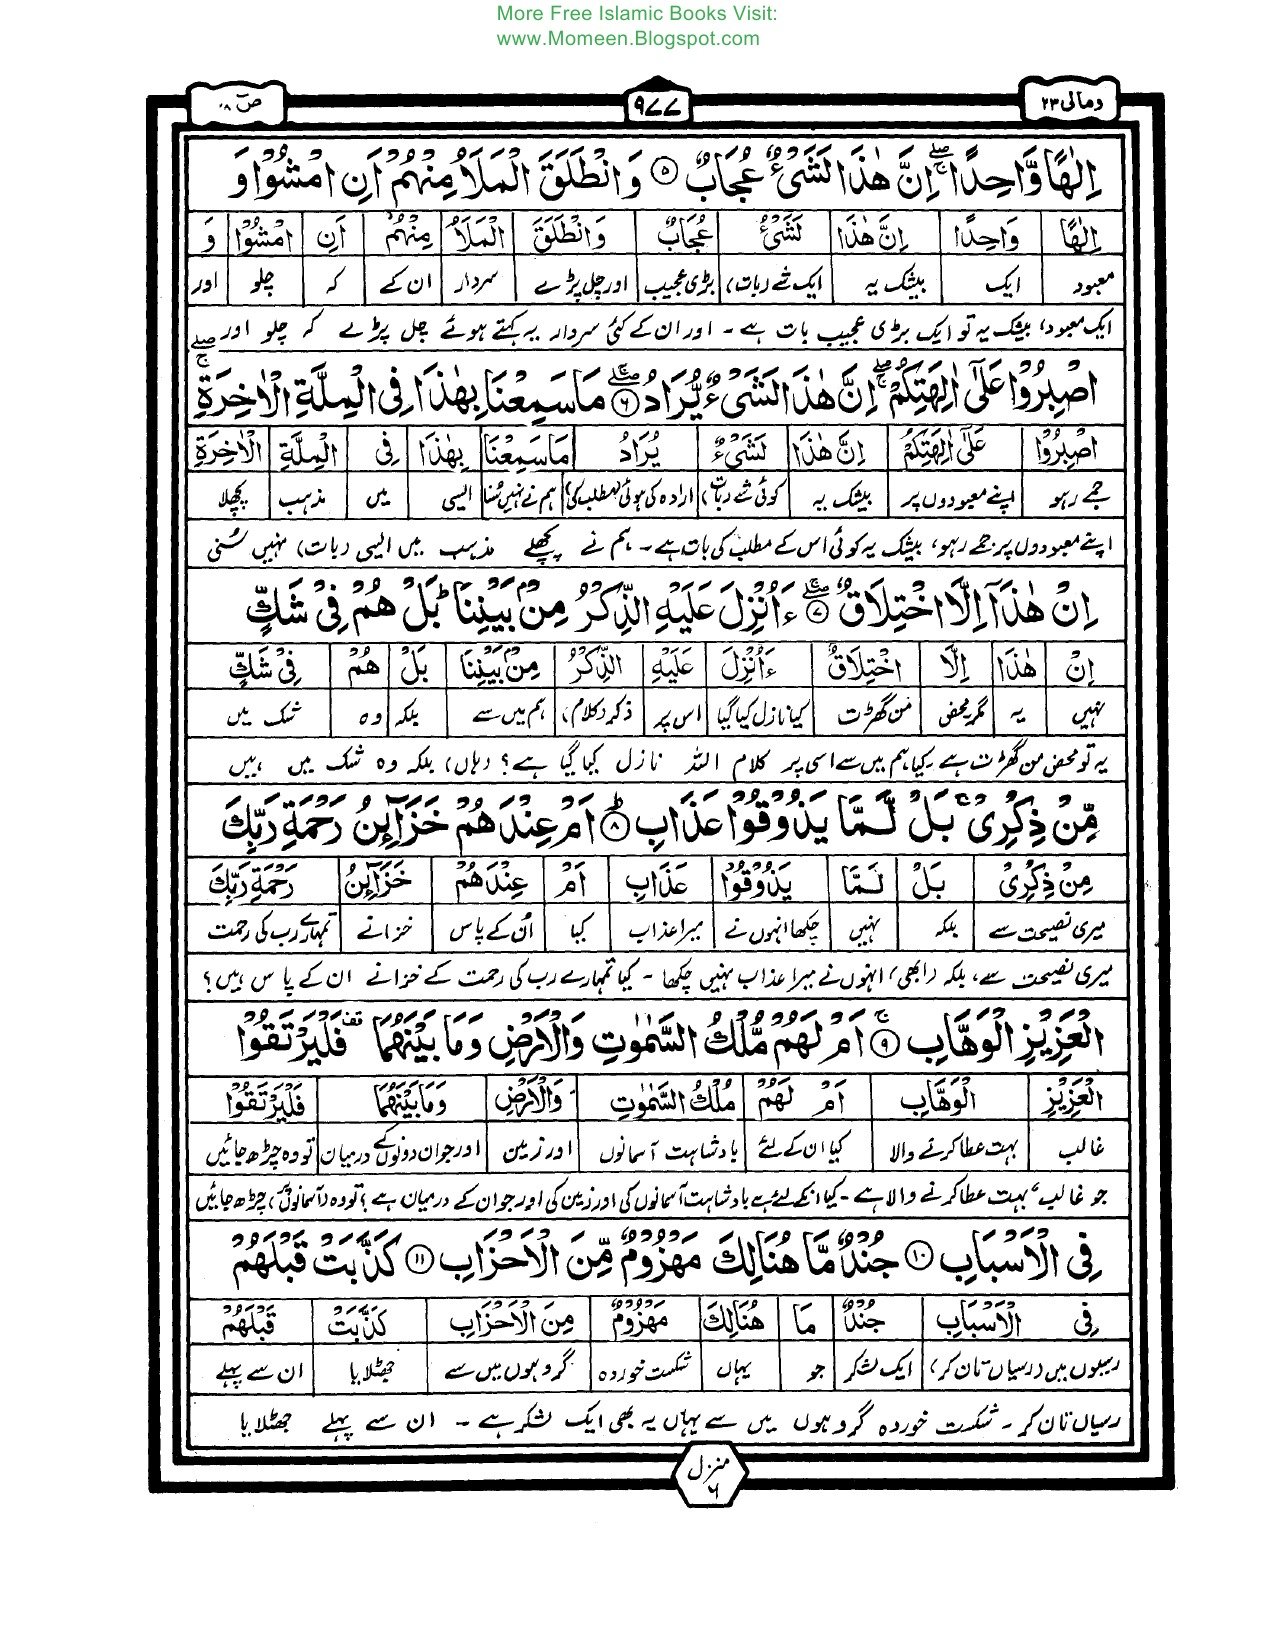 More Free Islamic Books Visit:
www.Momeen.Blogspot.com
ومالی ۲۳
۹۷۷
صٓ ۳۸
اِلٰهًا وَّاحِدًا ۖۚ اِنَّ هٰذَا لَشَیْءٌ عُجَابٌ ۝۵ وَ انْطَلَقَ الْمَلَاُ مِنْهُمْ اَنِ امْشُوْا وَ
اِلٰهًا وَاحِدًا اِنَّ هٰذَا لَشَیْءٌ عُجَابٌ وَانْطَلَقَ الْمَلَاُ مِنْهُمْ اَنِ امْشُوْا وَ
معبود ایک بیشک یہ ایک شے (بات) بڑی عجیب اور چل پڑے سردار ان کے کہ چلو اور
ایک معبود، بیشک یہ تو ایک بڑی عجیب بات ہے۔ اور ان کے کئی سردار یہ کہتے ہوئے چل پڑے کہ چلو اور
اصْبِرُوْا عَلٰۤی اٰلِهَتِكُمْ ۖۚ اِنَّ هٰذَا لَشَیْءٌ یُّرَادُ ۝۶ مَا سَمِعْنَا بِهٰذَا فِی الْمِلَّةِ الْاٰخِرَةِ ۖۚ
اصْبِرُوْا عَلٰۤی اٰلِهَتِكُمْ اِنَّ هٰذَا لَشَیْءٌ یُرَادُ مَا سَمِعْنَا بِهٰذَا فِی الْمِلَّةِ الْاٰخِرَةِ
جمے رہو اپنے معبودوں پر بیشک یہ کوئی شے (بات) ارادہ کی ہوئی (مطلب کی) ہم نے نہیں سنا ایسی میں مذہب پچھلا
اپنے معبودوں پر جمے رہو، بیشک یہ کوئی اس کے مطلب کی بات ہے۔ ہم نے پچھلے مذہب میں ایسی (بات) نہیں سُنی
اِنْ هٰذَاۤ اِلَّا اخْتِلَاقٌ ۝۷ ءَاُنْزِلَ عَلَیْهِ الذِّكْرُ مِنْۢ بَیْنِنَا ؕ بَلْ هُمْ فِیْ شَكٍّ
اِنْ هٰذَا اِلَّا اخْتِلَاقٌ ءَاُنْزِلَ عَلَیْهِ الذِّكْرُ مِنْۢ بَیْنِنَا بَلْ هُمْ فِیْ شَكٍّ
نہیں یہ مگر محض من گھڑت کیا نازل کیا گیا اس پر ذکر (کلام) ہم میں سے بلکہ وہ شک میں
یہ تو محض من گھڑت ہے۔ کیا ہم میں سے اسی پر کلام اللہ نازل کیا گیا ہے؟ (ہاں) بلکہ وہ شک میں ہیں
مِّنْ ذِكْرِیْ ۚ بَلْ لَّمَّا یَذُوْقُوْا عَذَابِ ۝۸ اَمْ عِنْدَهُمْ خَزَآئِنُ رَحْمَةِ رَبِّكَ
مِنْ ذِكْرِیْ بَلْ لَمَّا یَذُوْقُوْا عَذَابِ اَمْ عِنْدَهُمْ خَزَآئِنُ رَحْمَةِ رَبِّكَ
میری نصیحت سے بلکہ نہیں چکھا انہوں نے میرا عذاب کیا اُن کے پاس خزانے تمہارے رب کی رحمت
میری نصیحت سے، بلکہ (ابھی) انہوں نے میرا عذاب نہیں چکھا۔ کیا تمہارے رب کی رحمت کے خزانے ان کے پاس ہیں؟
الْعَزِیْزِ الْوَهَّابِ ۝۹ اَمْ لَهُمْ مُّلْكُ السَّمٰوٰتِ وَالْاَرْضِ وَمَا بَیْنَهُمَا قف فَلْیَرْتَقُوْا
الْعَزِیْزِ الْوَهَّابِ اَمْ لَهُمْ مُلْكُ السَّمٰوٰتِ وَالْاَرْضِ وَمَا بَیْنَهُمَا فَلْیَرْتَقُوْا
غالب بہت عطا کرنے والا کیا ان کے لئے بادشاہت آسمانوں اور زمین اور جو ان دونوں کے درمیان تو وہ چڑھ جائیں
جو غالب، بہت عطا کرنے والا ہے۔ کیا انکے لئے ہے بادشاہت آسمانوں کی اور زمین کی اور جو ان کے درمیان ہے؟ تو وہ (آسمانوں پر) چڑھ جائیں
فِی الْاَسْبَابِ ۝۱۰ جُنْدٌ مَّا هُنَالِكَ مَهْزُوْمٌ مِّنَ الْاَحْزَابِ ۝۱۱ كَذَّبَتْ قَبْلَهُمْ
فِی الْاَسْبَابِ جُنْدٌ مَا هُنَالِكَ مَهْزُوْمٌ مِنَ الْاَحْزَابِ كَذَّبَتْ قَبْلَهُمْ
رسیوں میں (رسیاں تان کر) ایک لشکر جو یہاں شکست خوردہ گروہوں میں سے جھٹلایا ان سے پہلے
رسیاں تان کر۔ شکست خوردہ گروہوں میں سے یہاں یہ بھی ایک لشکر ہے۔ ان سے پہلے جھٹلایا
منزل ۶